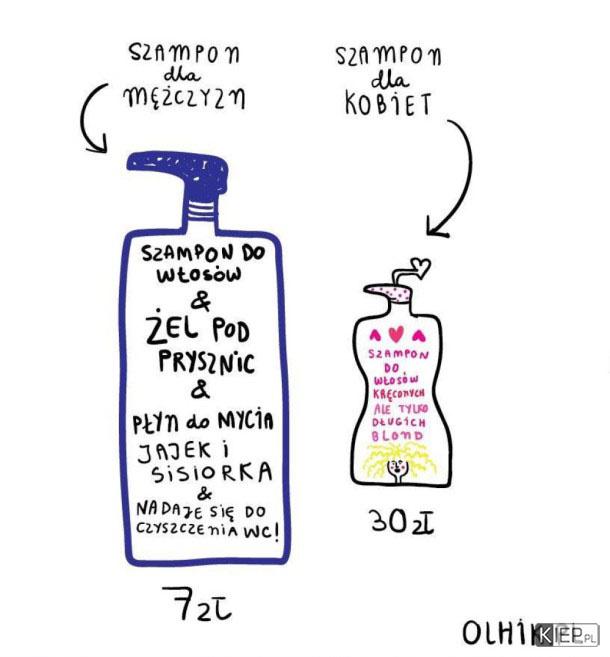 SZAMPON
dla
MĘŻCZYZN
SZAMPON
dla
KOBIET
SZAMPON DO
WŁOSÓW
&
ŻEL POD
PRYSZNIC
&
PŁYN do MYCIA
JAJEK i
SiSiORKA
&
NADAJE SIĘ DO
CZYSZCZENiA WC!
7zł
SZAMPON
DO
WŁOSÓW
KRĘCONYCH
ALE TYLKO
DŁUGICH
BLOND
30zł
KIEP.PL